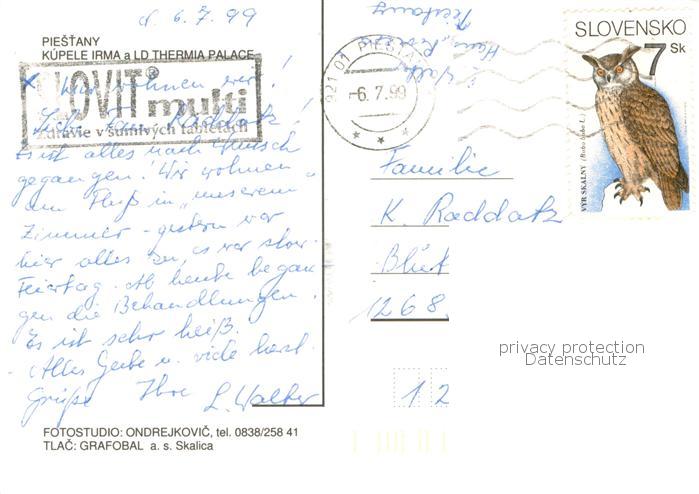 d. 6.7.99
PIEŠŤANY
KÚPELE IRMA a LD THERMIA PALACE
x hier wohnen wir!
SLOVIT® multi
zdravie v šumivých tabletách
Raddatz!
Es ist alles nach Wunsch
gegangen. Wir wohnen
am Fluß in „unserem"
Zimmer - gestern war
hier alles zu, es war slow.
Feiertag. Ab heute began
gen die Behandlungen.
Es ist sehr heiß.
Alles Gute u. viele herzl.
Grüße Ihre L. Walter
FOTOSTUDIO: ONDREJKOVIČ, tel. 0838/258 41
TLAČ: GRAFOBAL a. s. Skalica
921 01 PIEŠŤANY
-6.7.99
SLOVENSKO
7 Sk
VÝR SKALNÝ (Bubo bubo L.)
Familie
K. Raddatz
Blüt
1268
12
privacy protection
Datenschutz